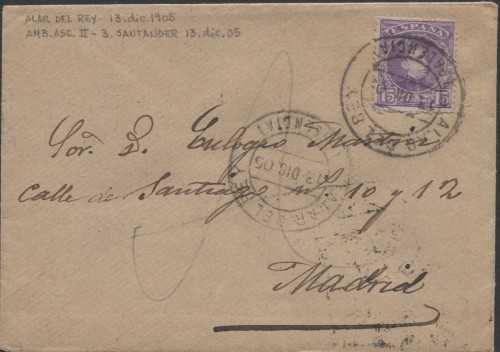 ALAR DEL REY 13.dic.1905
AMB.ASC. II-3. SANTANDER 13.dic.05
ESPAÑA
15 15
ALAR DEL REY
(PALENCIA)
Sor. D. Eulogio Martin
calle de Santiago nº 10 y 12
ALAR DEL REY
13 DIC 05
(PALENCIA)
Madrid